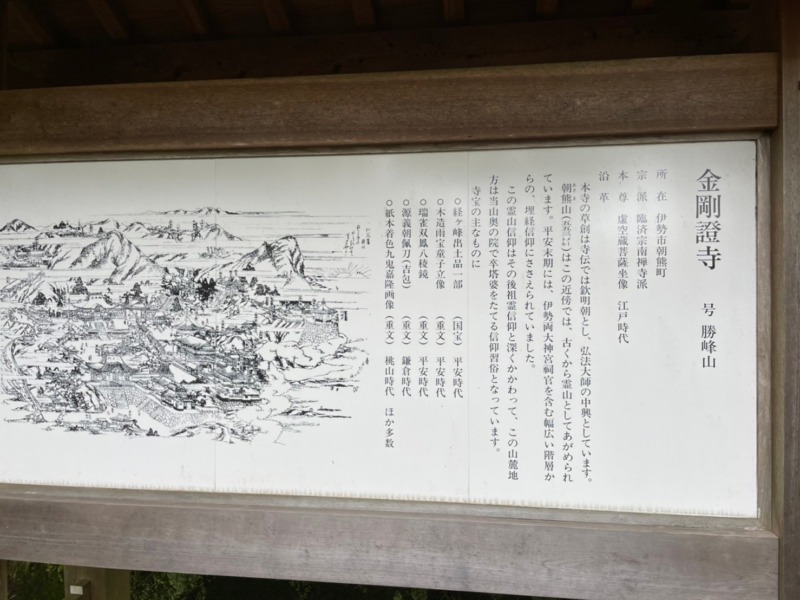 金剛證寺 号 勝峰山
所在 伊勢市朝熊町
宗派 臨済宗南禅寺派
本尊 虚空蔵菩薩坐像 江戸時代
沿革
本寺の草創は寺伝では欽明朝とし、弘法大師の中興としています。
朝熊山(五五三㍍)はこの近傍では、古くから霊山としてあがめられ
ています。平安末期には、伊勢両大神宮祠官を含む幅広い階層か
らの、埋経信仰にささえられていました。
この霊山信仰はその後祖霊信仰と深くかかわって、この山麓地
方は当山奥の院で卒塔婆をたてる信仰習俗となっています。
寺宝の主なものに
○経ヶ峰出土品一部 (国宝) 平安時代
○木造雨宝童子立像 (重文) 平安時代
○瑞雀双鳳八稜鏡 (重文) 平安時代
○源義朝佩刀(古包) (重文) 鎌倉時代
○紙本着色九鬼嘉隆画像 (重文) 桃山時代 ほか多数